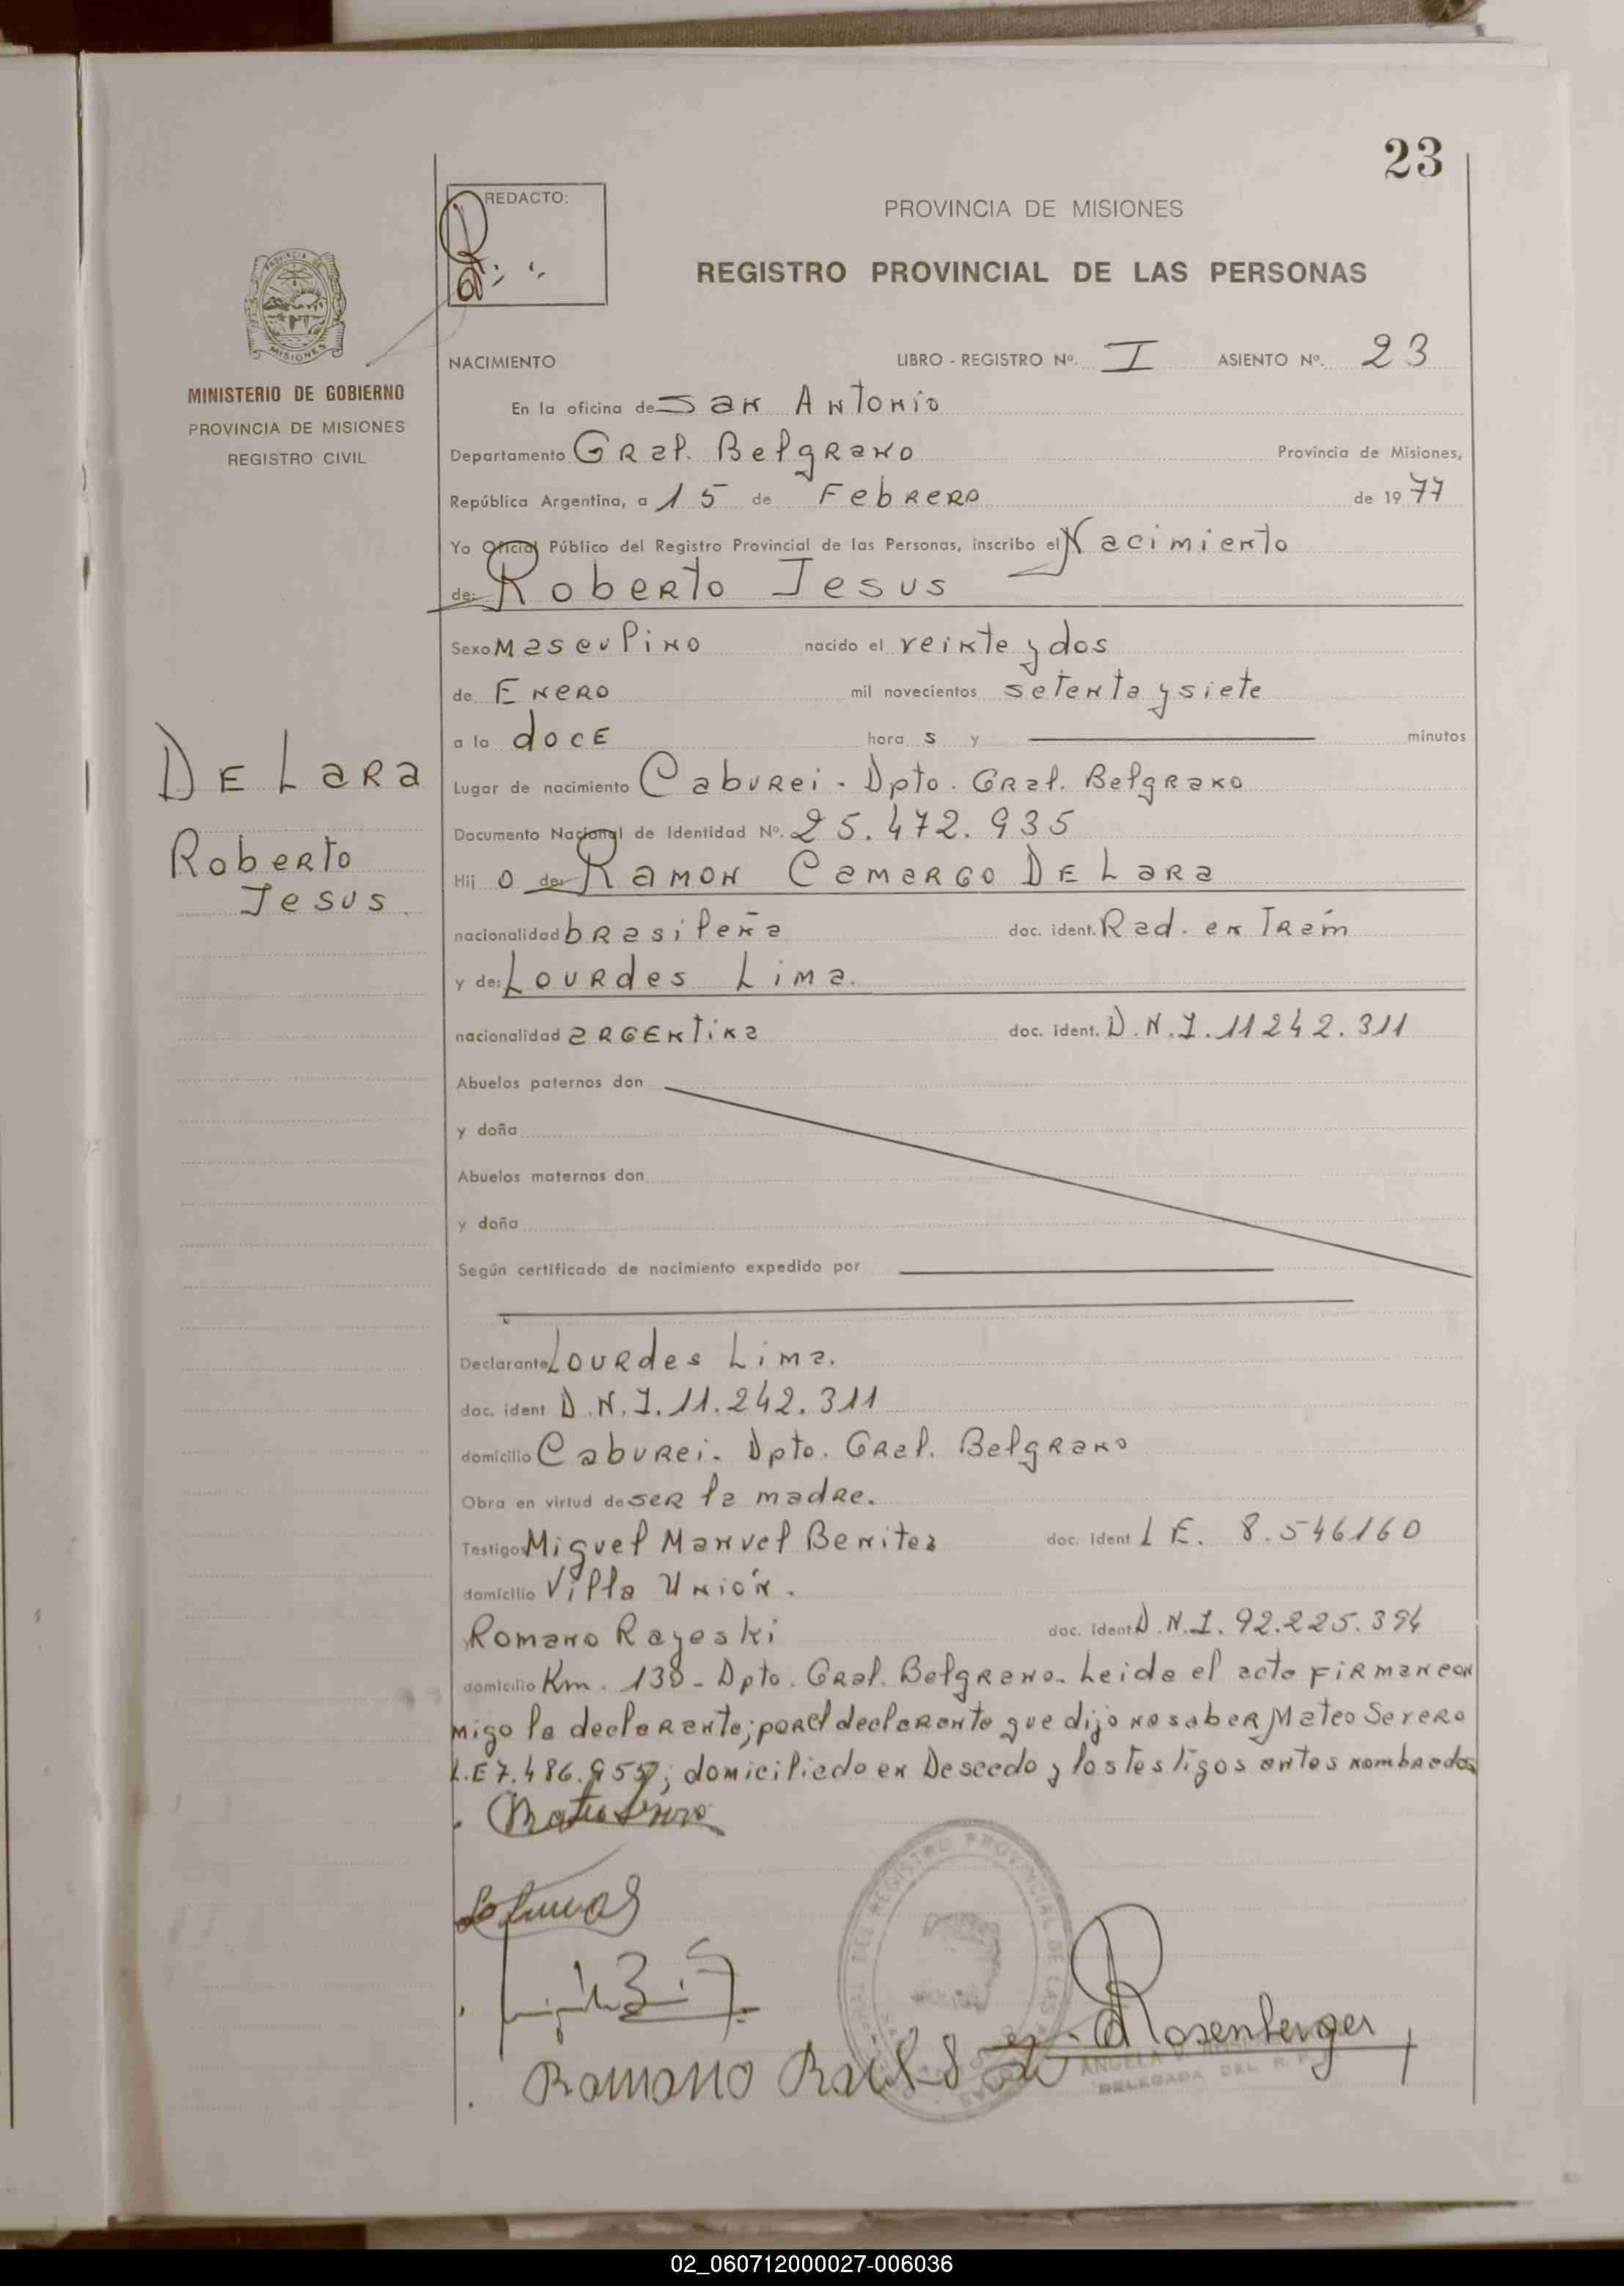 23
REDACTO:
PROVINCIA DE MISIONES
REGISTRO PROVINCIAL DE LAS PERSONAS
MISIONES
MINISTERIO DE GOBIERNO
PROVINCIA DE MISIONES
REGISTRO CIVIL
NACIMIENTO LIBRO - REGISTRO Nº. I ASIENTO Nº. 23
En la oficina de San Antonio
Departamento Gral. Belgrano Provincia de Misiones,
República Argentina, a 15 de Febrero de 1977
Yo Oficial Público del Registro Provincial de las Personas, inscribo el Nacimiento
de: Roberto Jesus
Sexo Masculino nacido el veinte y dos
de Enero mil novecientos setenta y siete
a la doce hora s y minutos
De Lara
Roberto
Jesus
Lugar de nacimiento Caburei - Dpto. Gral. Belgrano
Documento Nacional de Identidad Nº. 25.472.935
Hij o de: Ramon Camargo De Lara
nacionalidad brasileña doc. ident. Rad. en Trám
y de: Lourdes Lima.
nacionalidad argentina doc. ident. D.N.I. 11242.311
Abuelos paternos don
y doña
Abuelos maternos don
y doña
Según certificado de nacimiento expedido por
Declarante Lourdes Lima.
doc. ident D.N.I. 11.242.311
domicilio Caburei - Dpto. Gral. Belgrano
Obra en virtud de ser la madre.
Testigos Miguel Manuel Benitez doc. Ident L E. 8.546160
domicilio Villa Unión.
Romano Rayeski doc. Ident D.N.I. 92.225.394
domicilio Km. 130 - Dpto. Gral. Belgrano. Leida el acta firman con
migo la declarante; por el declarante que dijo no saber Mateo Severo
L.E 7.486. domiciliado en Deseado y los testigos antes nombrados
Romano
Rosenberger
ANGELA
DELEGADA DEL R. P.
02_060712000027-006036